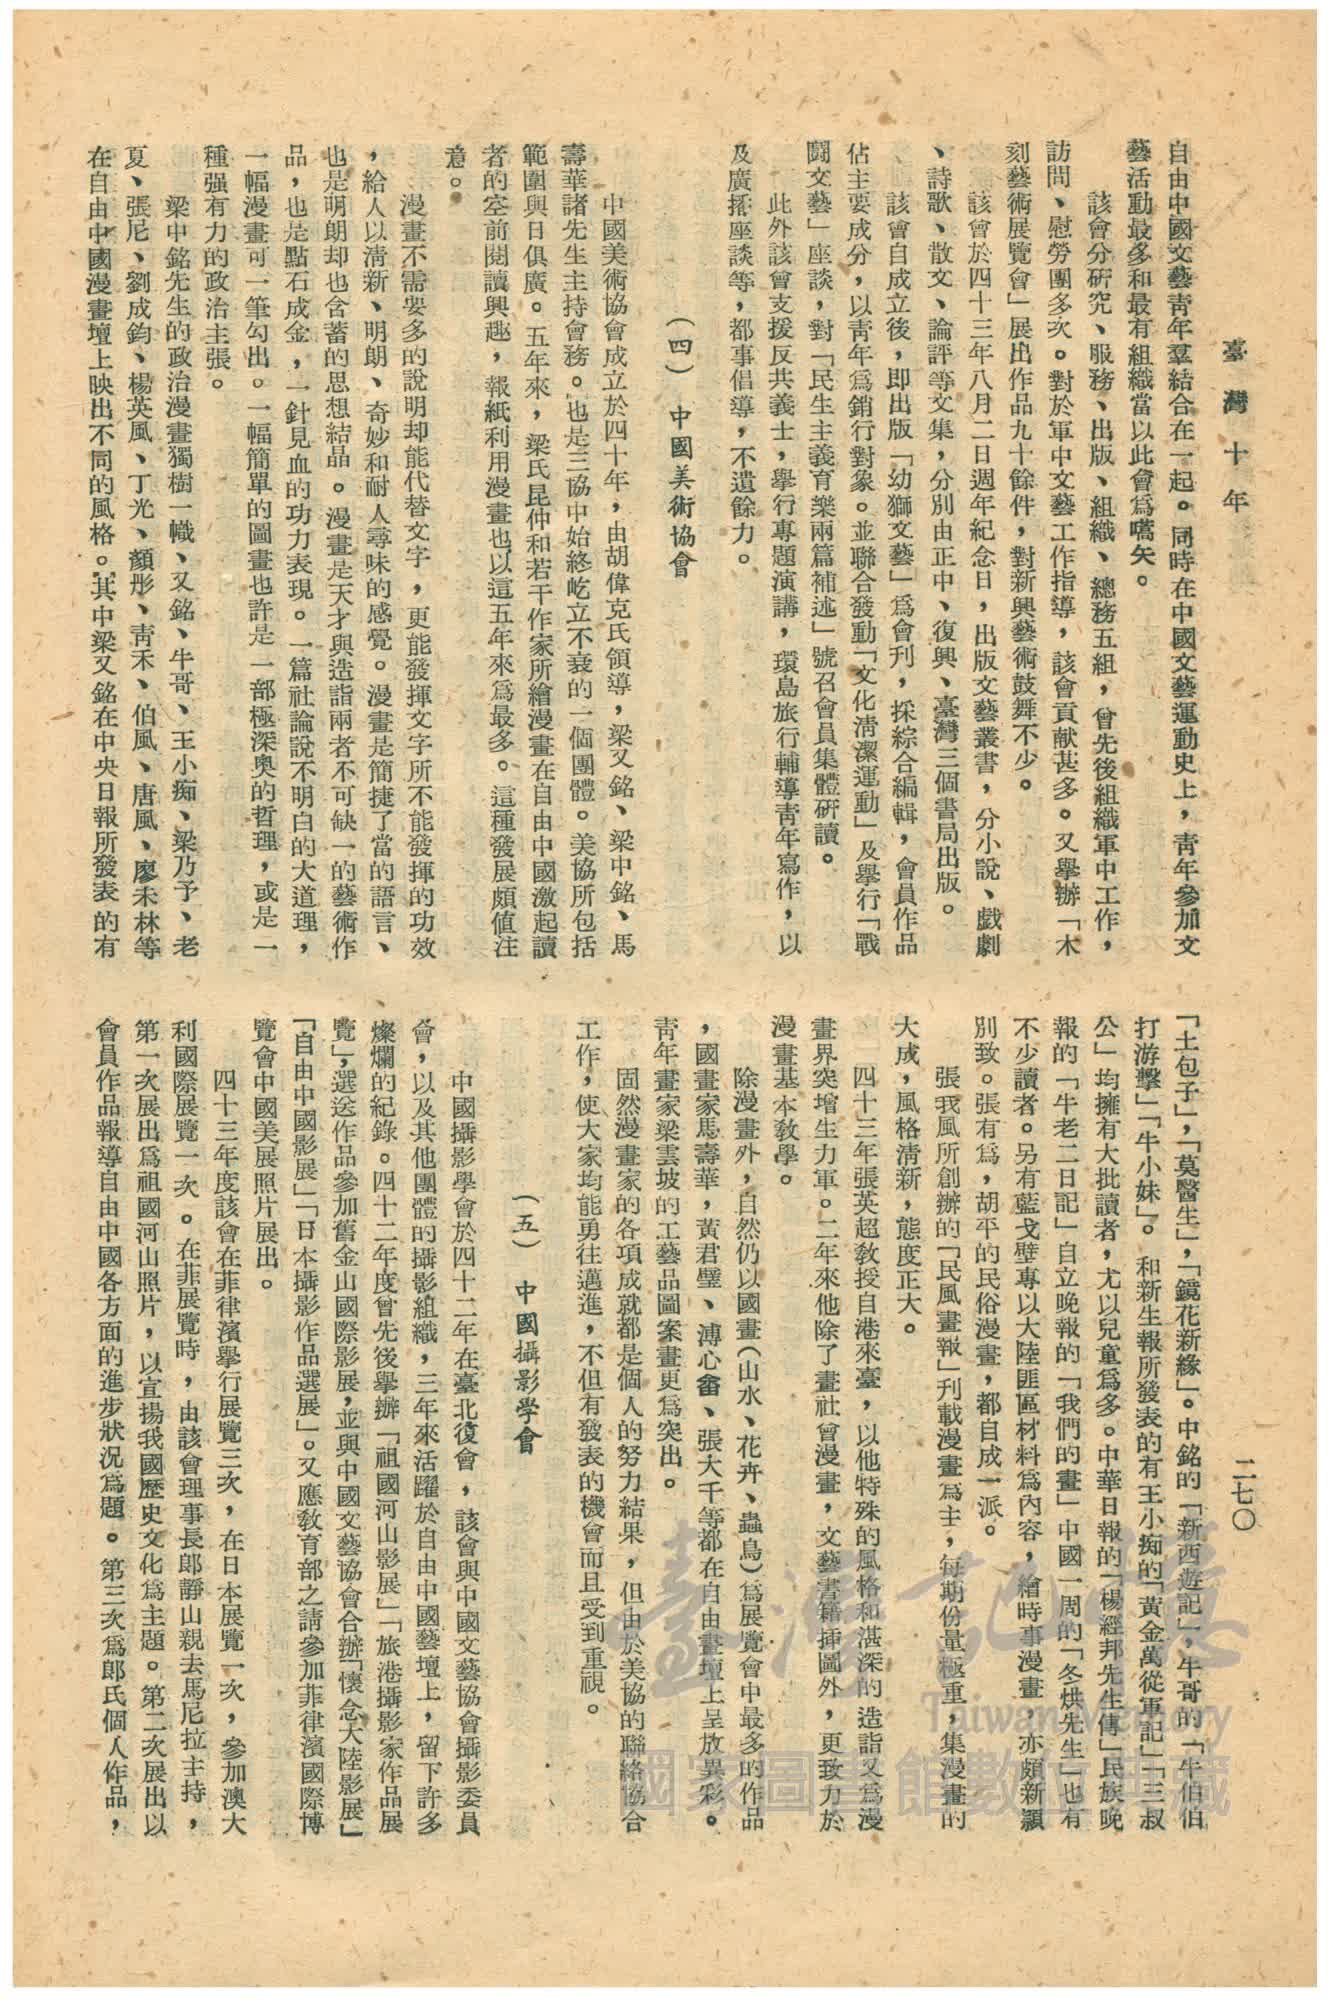 臺灣十年
二七〇
自由中國文藝靑年羣結合在一起。同時在中國文藝運動史上，靑年參加文
藝活動最多和最有組織當以此會爲嚆矢。
該會分硏究、服務、出版、組織、總務五組，曾先後組織軍中工作，
訪問、慰勞團多次。對於軍中文藝工作指導，該會貢献甚多。又舉辦「木
刻藝術展覽會」展出作品九十餘件，對新興藝術鼓舞不少。
該會於四十三年八月二日週年紀念日，出版文藝叢書，分小說、戲劇
、詩歌、散文、論評等文集，分別由正中、復興、臺灣三個書局出版。
該會自成立後，即出版「幼獅文藝」爲會刊，採綜合編輯，會員作品
佔主要成分，以靑年爲銷行對象。並聯合發動「文化淸潔運動」及舉行「戰
鬪文藝」座談，對「民生主義育樂兩篇補述」號召會員集體硏讀。
此外該會支援反共義士，舉行專題演講，環島旅行輔導靑年寫作，以
及廣播座談等，都事倡導，不遺餘力。
（四）　中國美術協會
中國美術協會成立於四十年，由胡偉克氏領導，梁又銘、梁中銘、馬
壽華諸先生主持會務。也是三協中始終屹立不衰的一個團體。美協所包括
範圍與日俱廣。五年來，梁氏昆仲和若干作家所繪漫畫在自由中國激起讀
者的空前閱讀興趣，報紙利用漫畫也以這五年來爲最多。這種發展頗值注
意。
漫畫不需要多的說明却能代替文字，更能發揮文字所不能發揮的功效
，給人以淸新、明朗、奇妙和耐人尋味的感覺。漫畫是簡捷了當的語言、
也是明朗却也含蓄的思想結晶。漫畫是天才與造詣兩者不可缺一的藝術作
品，也是點石成金，一針見血的功力表現。一篇社論說不明白的大道理，
一幅漫畫可一筆勾出。一幅簡單的圖畫也許是一部極深奧的哲理，或是一
種强有力的政治主張。
梁中銘先生的政治漫畫獨樹一幟、又銘、牛哥、王小痴、梁乃予、老
夏、張尼、劉成鈞、楊英風、丁光、顏彤、靑禾、伯風、唐風、廖未林等
在自由中國漫畫壇上映出不同的風格。其中梁又銘在中央日報所發表的有
「土包子」，「莫醫生」，「鏡花新緣」。中銘的「新西遊記」，牛哥的「牛伯伯
打游擊」「牛小妹」。和新生報所發表的有王小痴的「黃金萬從軍記」「三叔
公」均擁有大批讀者，尤以兒童爲多。中華日報的「楊經邦先生傳」民族晚
報的「牛老二日記」自立晚報的「我們的畫」中國一周的「冬烘先生」也有
不少讀者。另有藍戈壁專以大陸匪區材料爲內容，繪時事漫畫，亦頗新穎
別致。張有爲，胡平的民俗漫畫，都自成一派。
張我風所創辦的「民風畫報」刊載漫畫爲主，每期份量極重，集漫畫的
大成，風格淸新，態度正大。
四十三年張英超敎授自港來臺，以他特殊的風格和湛深的造詣又爲漫
畫界突增生力軍。二年來他除了畫社會漫畫，文藝書籍插圖外，更致力於
漫畫基本敎學。
除漫畫外，自然仍以國畫（山水、花卉、蟲鳥）爲展覽會中最多的作品
，國畫家馬壽華，黃君璧、溥心畬、張大千等都在自由畫壇上呈放異彩。
靑年畫家梁雲坡的工藝品圖案畫更爲突出。
固然漫畫家的各項成就都是個人的努力結果，但由於美協的聯絡協合
工作，使大家均能勇往邁進，不但有發表的機會而且受到重視。
（五）　中國攝影學會
中國攝影學會於四十二年在臺北復會，該會與中國文藝協會攝影委員
會，以及其他團體的攝影組織，三年來活躍於自由中國藝壇上，留下許多
燦爛的紀錄。四十二年度曾先後舉辦「祖國河山影展」「旅港攝影家作品展
覽」，選送作品參加舊金山國際影展，並與中國文藝協會合辦「懷念大陸影展」
「自由中國影展」「日本攝影作品選展」。又應敎育部之請參加菲律濱國際博
覽會中國美展照片展出。
四十三年度該會在菲律濱舉行展覽三次，在日本展覽一次，參加澳大
利國際展覽一次。在菲展覽時，由該會理事長郎靜山親去馬尼拉主持，
第一次展出爲祖國河山照片，以宣揚我國歷史文化爲主題。第二次展出以
會員作品報導自由中國各方面的進步狀況爲題。第三次爲郎氏個人作品，
臺灣記憶
Taiwan Memory
國家圖書館數位典藏